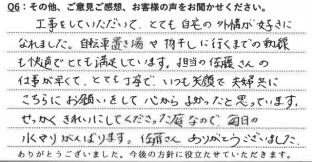 Q6：その他、ご意見ご感想、お客様の声をお聞かせください。
工事をしていただいて、とても自宅の外構が好きに
なれました。自転車置き場や物干しに行くまでの動線
も快適でとても満足しています。担当の佐藤さんの
仕事が早くて、とても丁寧で、いつも笑顔で夫婦共に
こちらにお願いをして心からよかったと思っています。
せっかくきれいにしてくださった庭なので、毎日の
水やりがんばります。佐藤さん ありがとうございました。
ありがとうございました。今後の方針に役立たせていただきます。